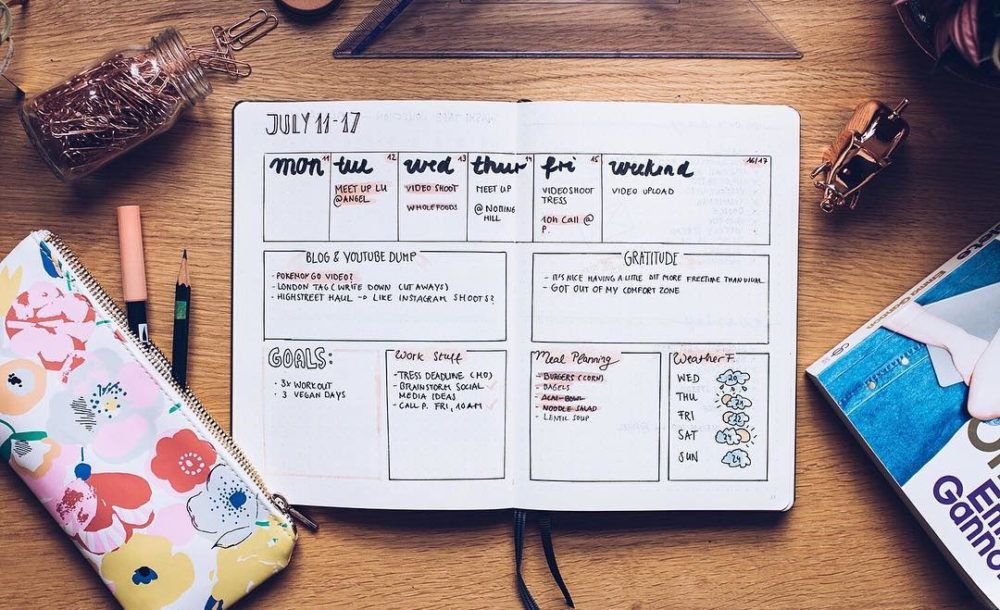 JULY 11-17
mon 11
tue 12
wed 13
thur 14
fri 15
weekend 16/17
MEET UP LU
@ANGEL
VIDEO SHOOT
WHOLEFOODS
MEET UP
@ NOTTING
HILL
VIDEOSHOOT
TRESS
10h Call @
P.
VIDEO UPLOAD
BLOG & YOUTUBE DUMP
- POKEMON GO VIDEO?
- LONDON TAG (WRITE DOWN CUTAWAYS)
- HIGHSTREET HAUL → LIKE INSTAGRAM SHOOTS?
GRATITUDE
- IT'S NICE HAVING A LITTLE BIT MORE FREETIME THAN USUAL
- GOT OUT OF MY COMFORT ZONE
GOALS:
· 3x WORKOUT
· 3 VEGAN DAYS
Work Stuff
- TRESS DEADLINE (MO)
- BRAINSTORM SOCIAL
MEDIA IDEAS
- CALL P. FRI, 10AM
Meal Planning
- BURGERS (CORN)
- BAGELS
- ACAI-BOWL
- NOODLE SALAD
- LENTIL SOUP
Weather F.
WED 20
THU 22
FRI 22
SAT 24
SUN 24
Emma Gannon
Gannon